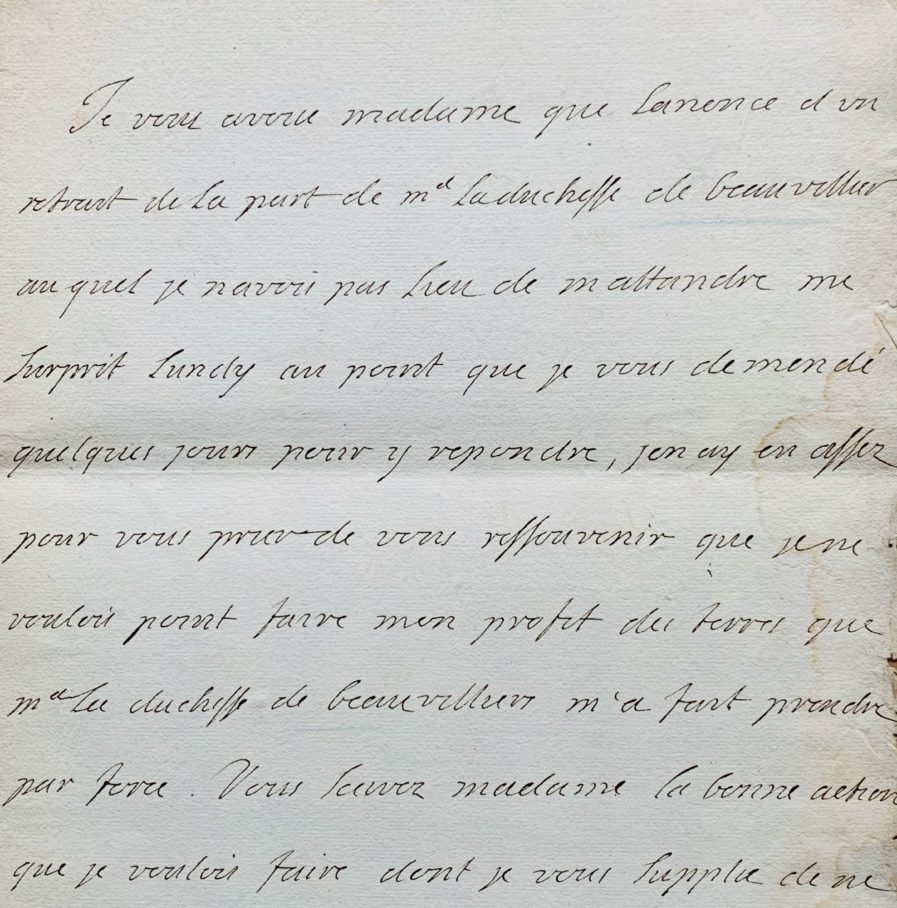 Je vous avoue madame que Lanonce d un
retrait de La part de md La duchesse de beauvillier
au quel je navois pas Lieu de mattandre me
Surprit Lundy au point que je vous demendé
quelques jours pour y repondre, jen ay eu assez
pour vous prier de vous ressouvenir que je ne
voulois point faire mon profit des terres que
md La duchesse de beauvilliers m'a fait prendre
par force. Vous scavez madame la bonne action
que je voulois faire dont je vous Supplie de ne